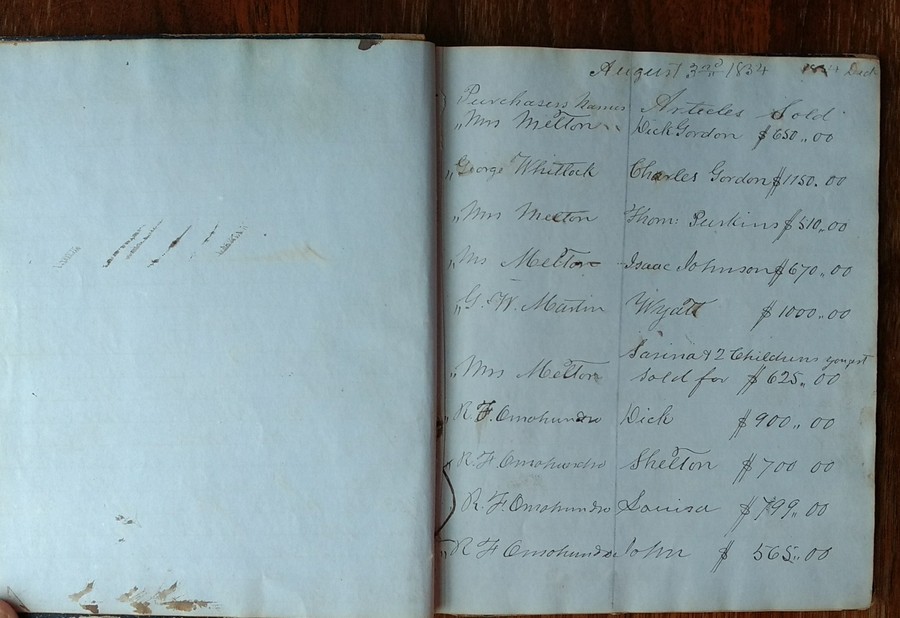 August 3rd 1834
Purchasers Names Articles Sold
"Mrs Melton Dick Gordon $650..00
"George Whitlock Charles Gordon $1150.00
"Mrs Melton Thom: Perkins $510,,00
"Ms Melton Isaac Johnson $670,,00
"G. W. Martin Wyatt $1000,,00
& 2 Childrens yongest
"Mrs Melton sold for $625,,00
"R. F. Omohundro Dick $900,,00
"R. F Omohundro Shelton $700 00
R. F Omohundro Louisa $799,,00
"R F Omohundro John $ 565,,00